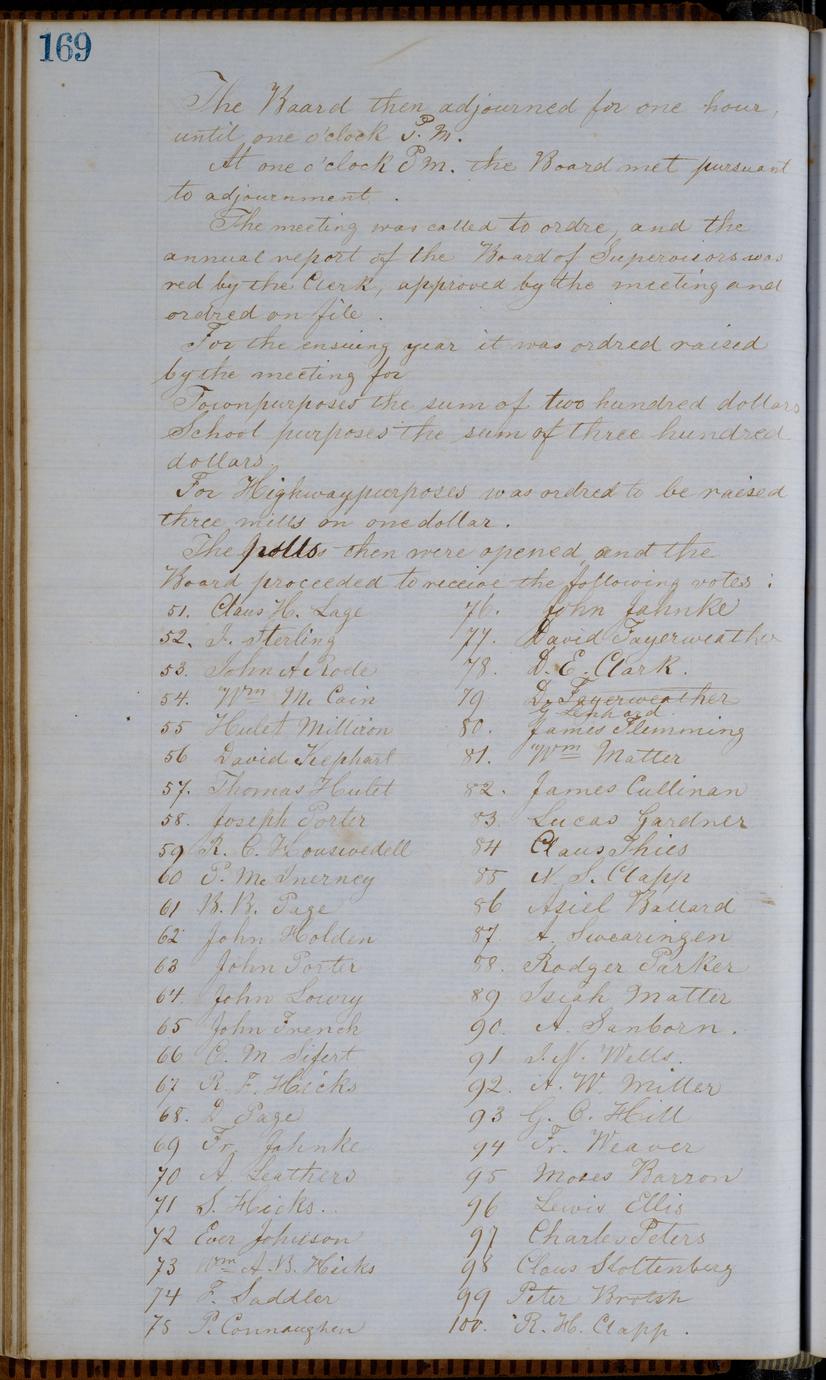 169
The Board then adjourned for one hour,
until one o'clock P.M.
At one o'clock P.M. the Board met pursuant
to adjournment.
The meeting was called to ordre, and the
annual report of the Board of Supervisors was
red by the Clerk, approved by the meeting and
ordred on file.
For the ensuing year it was ordred raised
by the meeting for
Townpurposes the sum of two hundred dollars
School purposes the sum of three hundred
dollars.
For Highwaypurposes was ordred to be raised
three mills on one dollar.
The polls then were opened, and the
Board proceeded to receive the following votes:
51. Claus H. Lage
52. J. Sterling
53. John A Rode
54. Wm Mc Cain
55 Hulet Milliron
56 David Kephart
57. Thomas Hulet
58. Joseph Porter
59 R. C. Kouswedell
60 P. Mc Inerney
61 B. B. Page
62 John Holden
63 John Porter
64. John Lowry
65 John French
66 C. M Sifert
67 R. F. Hicks
68. D. Page
69 Fr. Jahnke
70 A. Leathers
71 S. Hicks.
72 Ever Johnson
73 Wm A. B. Hicks
74 F. Saddler
75 P. Connaughen
76. John Jahnke
77. David Fayerweather
78. D. E. Clark.
79 D. Fayerweather
Lenhard
80. James Flemming
81. Wm Matter
82. James Cullinan
83. Lucas Gardner
84 Claus Thies
85 N. S. Clapp
86 Asiel Ballard
87. A. Swearingen
88. Rodger Parker
89 Isiah Matter
90. A. Sanborn.
91 J. N. Wells.
92. A. W Miller
93 G. C. Hill
94 Fr. Weaver
95 Moses Barron
96 Lewis Ellis
97 Charles Peters
98 Claus Stoltenberg
99 Peter Brotsh
100. R. H. Clapp.